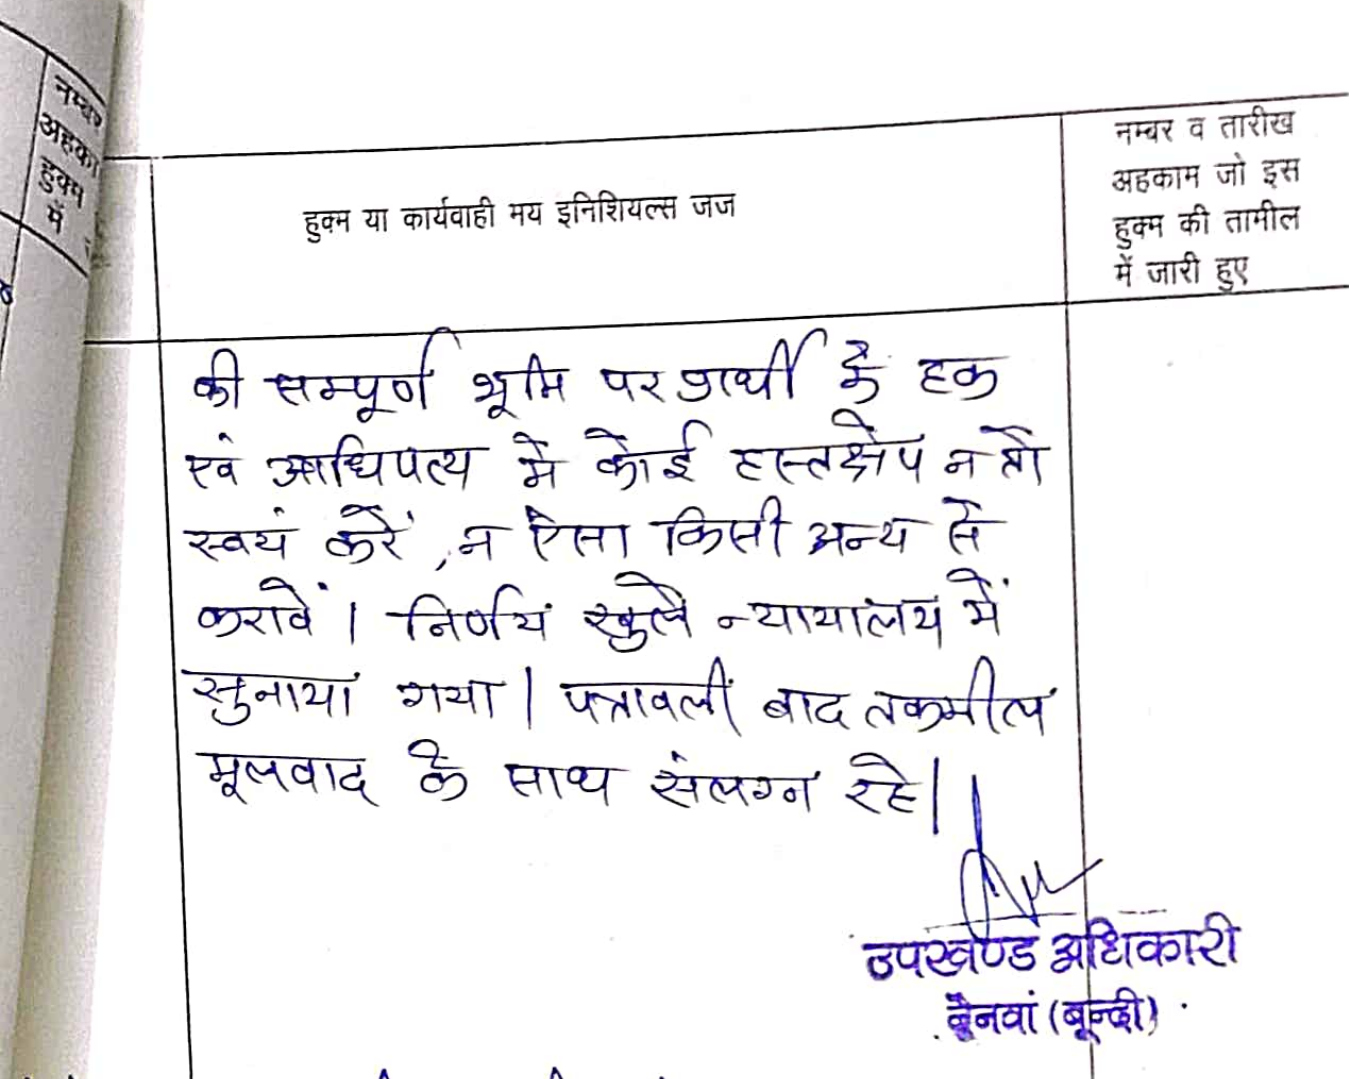 नम्बर
अहका
हुक्म
में
हुक्म या कार्यवाही मय इनिशियल्स जज
नम्बर व तारीख
अहकाम जो इस
हुक्म की तामील
में जारी हुए
की सम्पूर्ण भूमि पर प्रार्थी के हक
एवं आधिपत्य में कोई हस्तक्षेप न तो
स्वयं करें, न ऐसा किसी अन्य से
करावें। निर्णय खुले न्यायालय में
सुनाया गया। पत्रावली बाद तकमील
मूलवाद के साथ संलग्न रहे।
उपखण्ड अधिकारी
नैनवां (बून्दी)